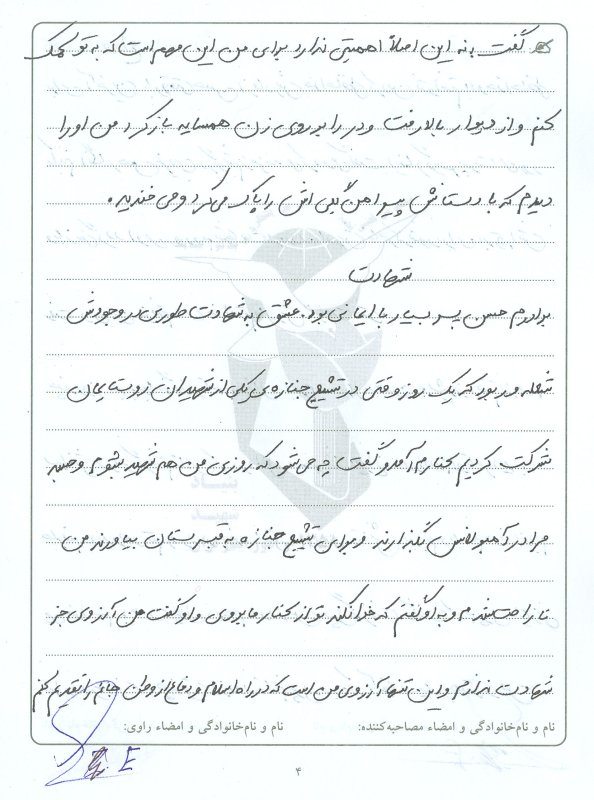 گفت: نه این اصلاً اهمیتی ندارد برای من این مهم است که به تو کمک
کنم و از دیوار بالا رفت و در را بروی زن همسایه باز کرد، من او را
دیدم که با دستانش پیراهن گلی اش را پاک می کرد و می خندید.
شهادت
برادرم حسن پسر بسیار با ایمانی بود. عشق به شهادت طوری در وجودش
شعله ور بود که یک روز وقتی در تشییع جنازه ی یکی از شهیدان روستایمان
شرکت کردیم کنارم آمد و گفت چه می شود که روزی من هم شهید بشوم و جسد
مرا در آمبولانس بگذارند و برای تشییع جنازه به قبرستان بیاورند من
ناراحت شدم و به او گفتم که خدا نکند تو از کنار ما بروی و او گفت من آرزوی جز
شهادت ندارم و این تنها آرزوی من است که در راه اسلام و دفاع از وطن جانم را تقدیم کنم
نام و نام‌خانوادگی و امضاء مصاحبه‌کننده: نام و نام‌خانوادگی و امضاء راوی:
۴